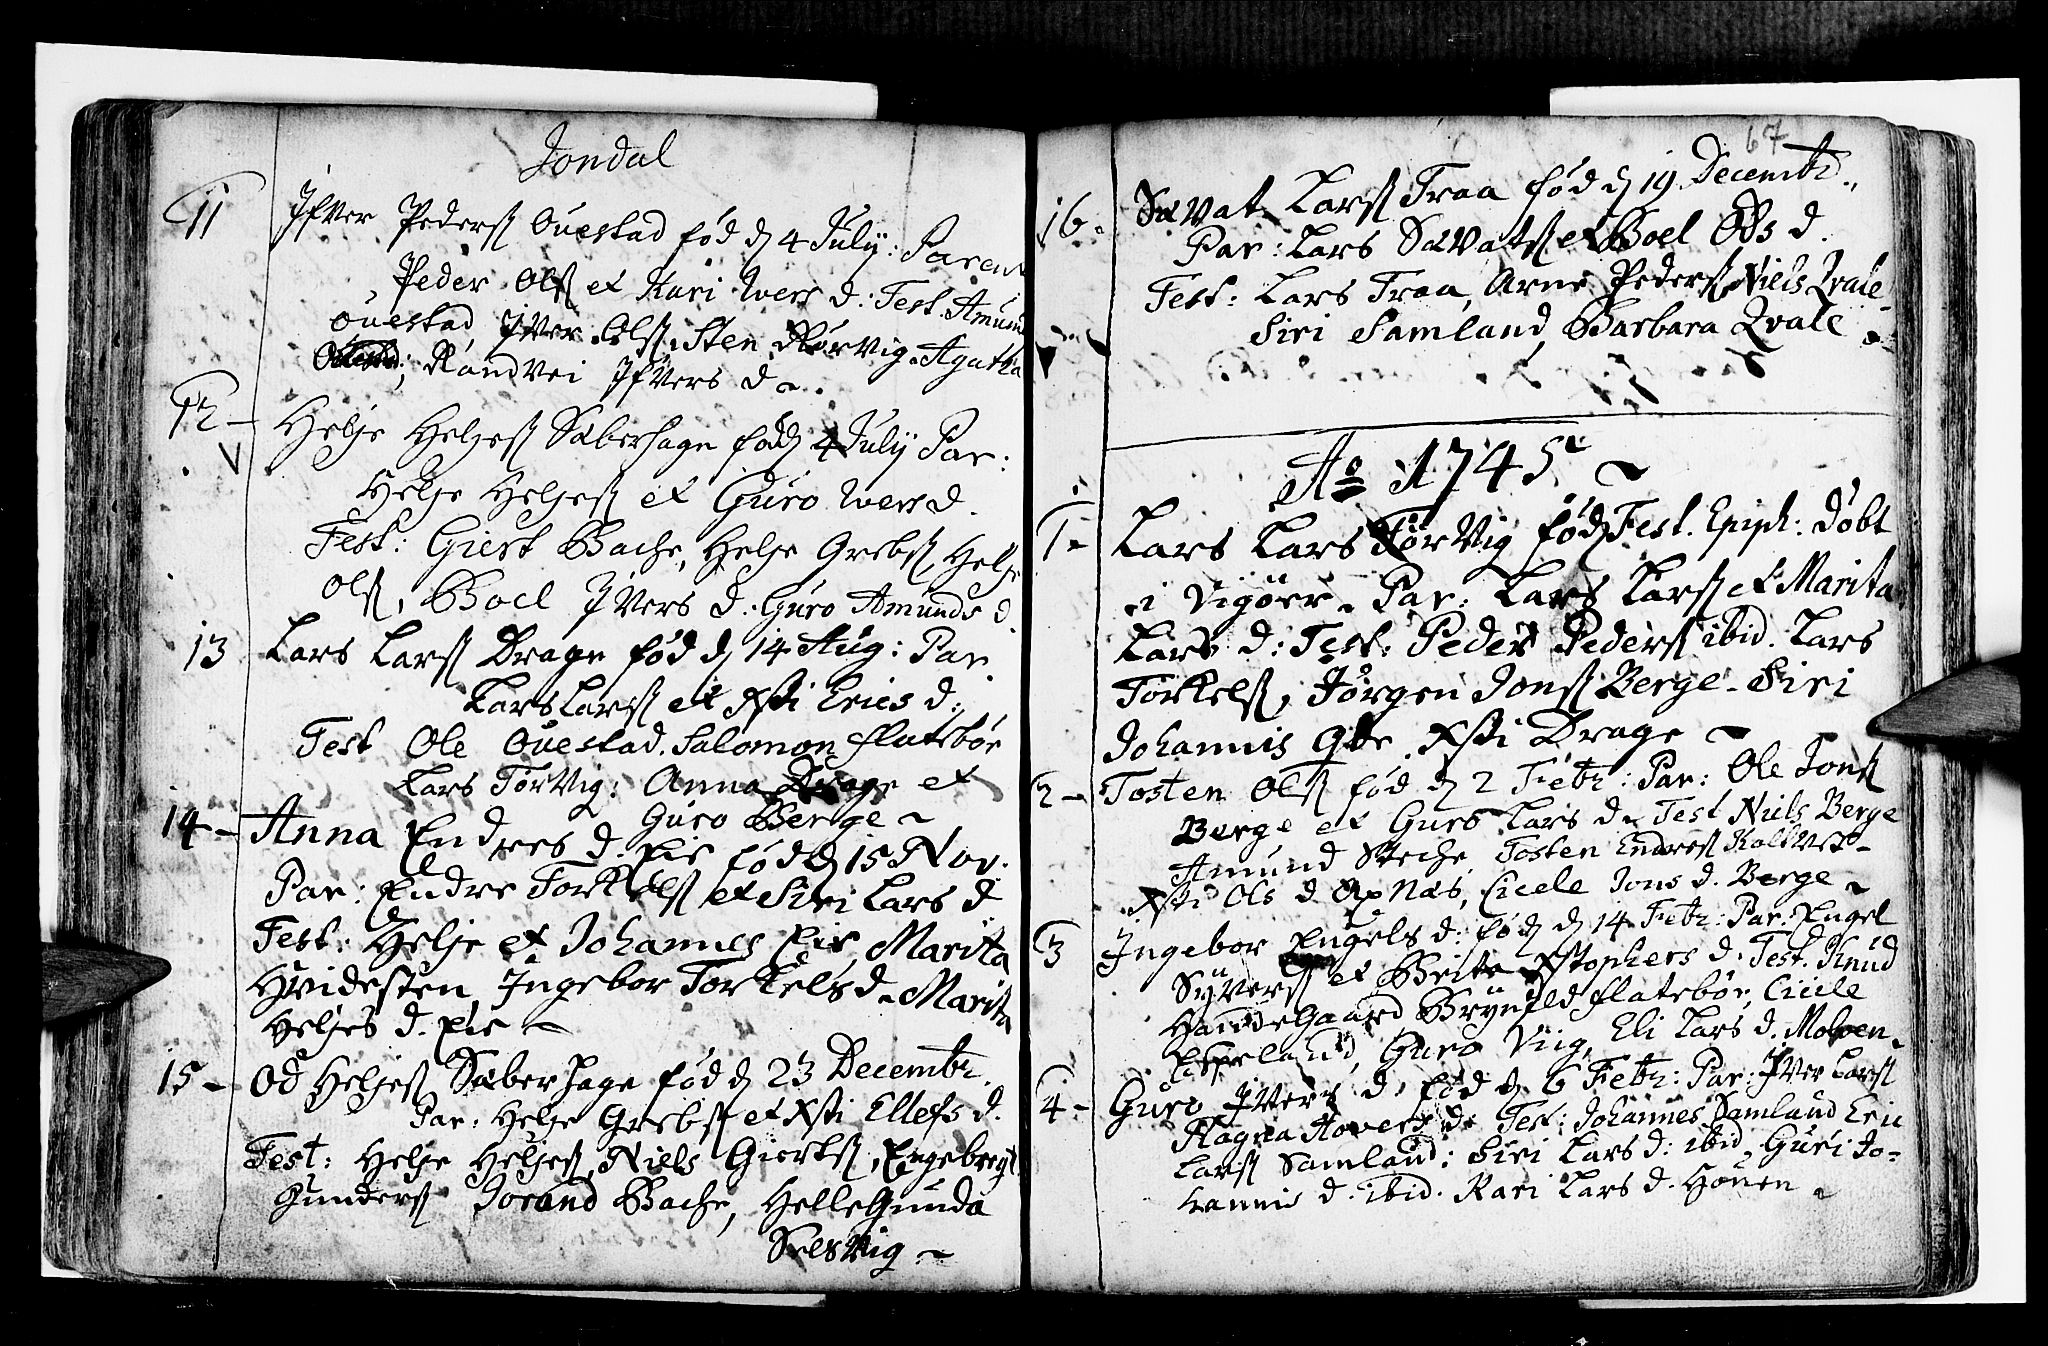 Jondal
11 Ifver Peders Ouestad fød d 4 July: Paren
Peder Ols et Kari Ivers d: Test. Amun
Ouestad Iver Ols. Sten Rørvig. Agatha
Randvei Ifvers d.
12 - Helje Heljes Sæberhage fød d 4 July Par:
Helje Heljes et Guro Ivers d.
Test: Giert Bache, Helje Grebs, Helje
Ols, Boel Ivers d. Guro Amunds d.
13 Lars Lars Drage fød d 14 Aug: Par
Lars Lars et Xsti Erics d:
Test Ole Ouestad. Salomon flatebøe
Lars Tørvig: Anna Drage et
Guro Berge
14 - Anna Endres d. Eie fød d 15 Nov.
Par: Endre Torkels et Siri Lars d
Test: Helje et Johannes Eie, Marita
Hvidesten, Ingebor Torkels d. Marita
Heljes d. Eie
15 - Od Heljes Sæberhage fød d 23 Decembr.
Par: Helje Grebs et Xsti Ellefs d.
Test: Helje Heljes, Niels Gierts, Engebregt
Gunders Jorand Bache, Helle Gunda
Selsvig
67
16. Sævat Lars Traa fød d 19 Decembr.
Par: Lars Sævats et Boel Ols d.
Test: Lars Traa, Arne Peders, Niels Qvale
Siri Samland, Barbara Qvale
Ao 1745
1. Lars Lars Tørvig fød Fest. Epiph: døbt
i Vigøer. Par: Lars Lars et Marita
Lars d: Test: Peder Peders ibid. Lars
Torkels, Jørgen Jons Berge. Siri
Johannis Xsti Drage
2 - Tosten Ols fød d 2 Febr: Par: Ole Jons
Berge et Guro Lars d. Test Niels Berge
Amund Steche, Tosten Endres
Xsti Ols d. Næs, Cicele Jons d. Berge
3 Ingebor Engels d: fød d 14 Febr: Par: Engel
Syvers et Brite Xstophers d. Test. Knud
HandeGaard Brynild flatebøe, Cicele
Espeland, Guro Viig, Eli Lars d. Molven.
4 - Guro Ivers d. fød d. 6 Febr: Par: Iver Lars
Ragna Hovers d. Test: Johannes Samland Eric
Lars Samland: Siri Lars d: ibid, Guri Jo-
hannis d. ibid. Kari Lars d. Houen